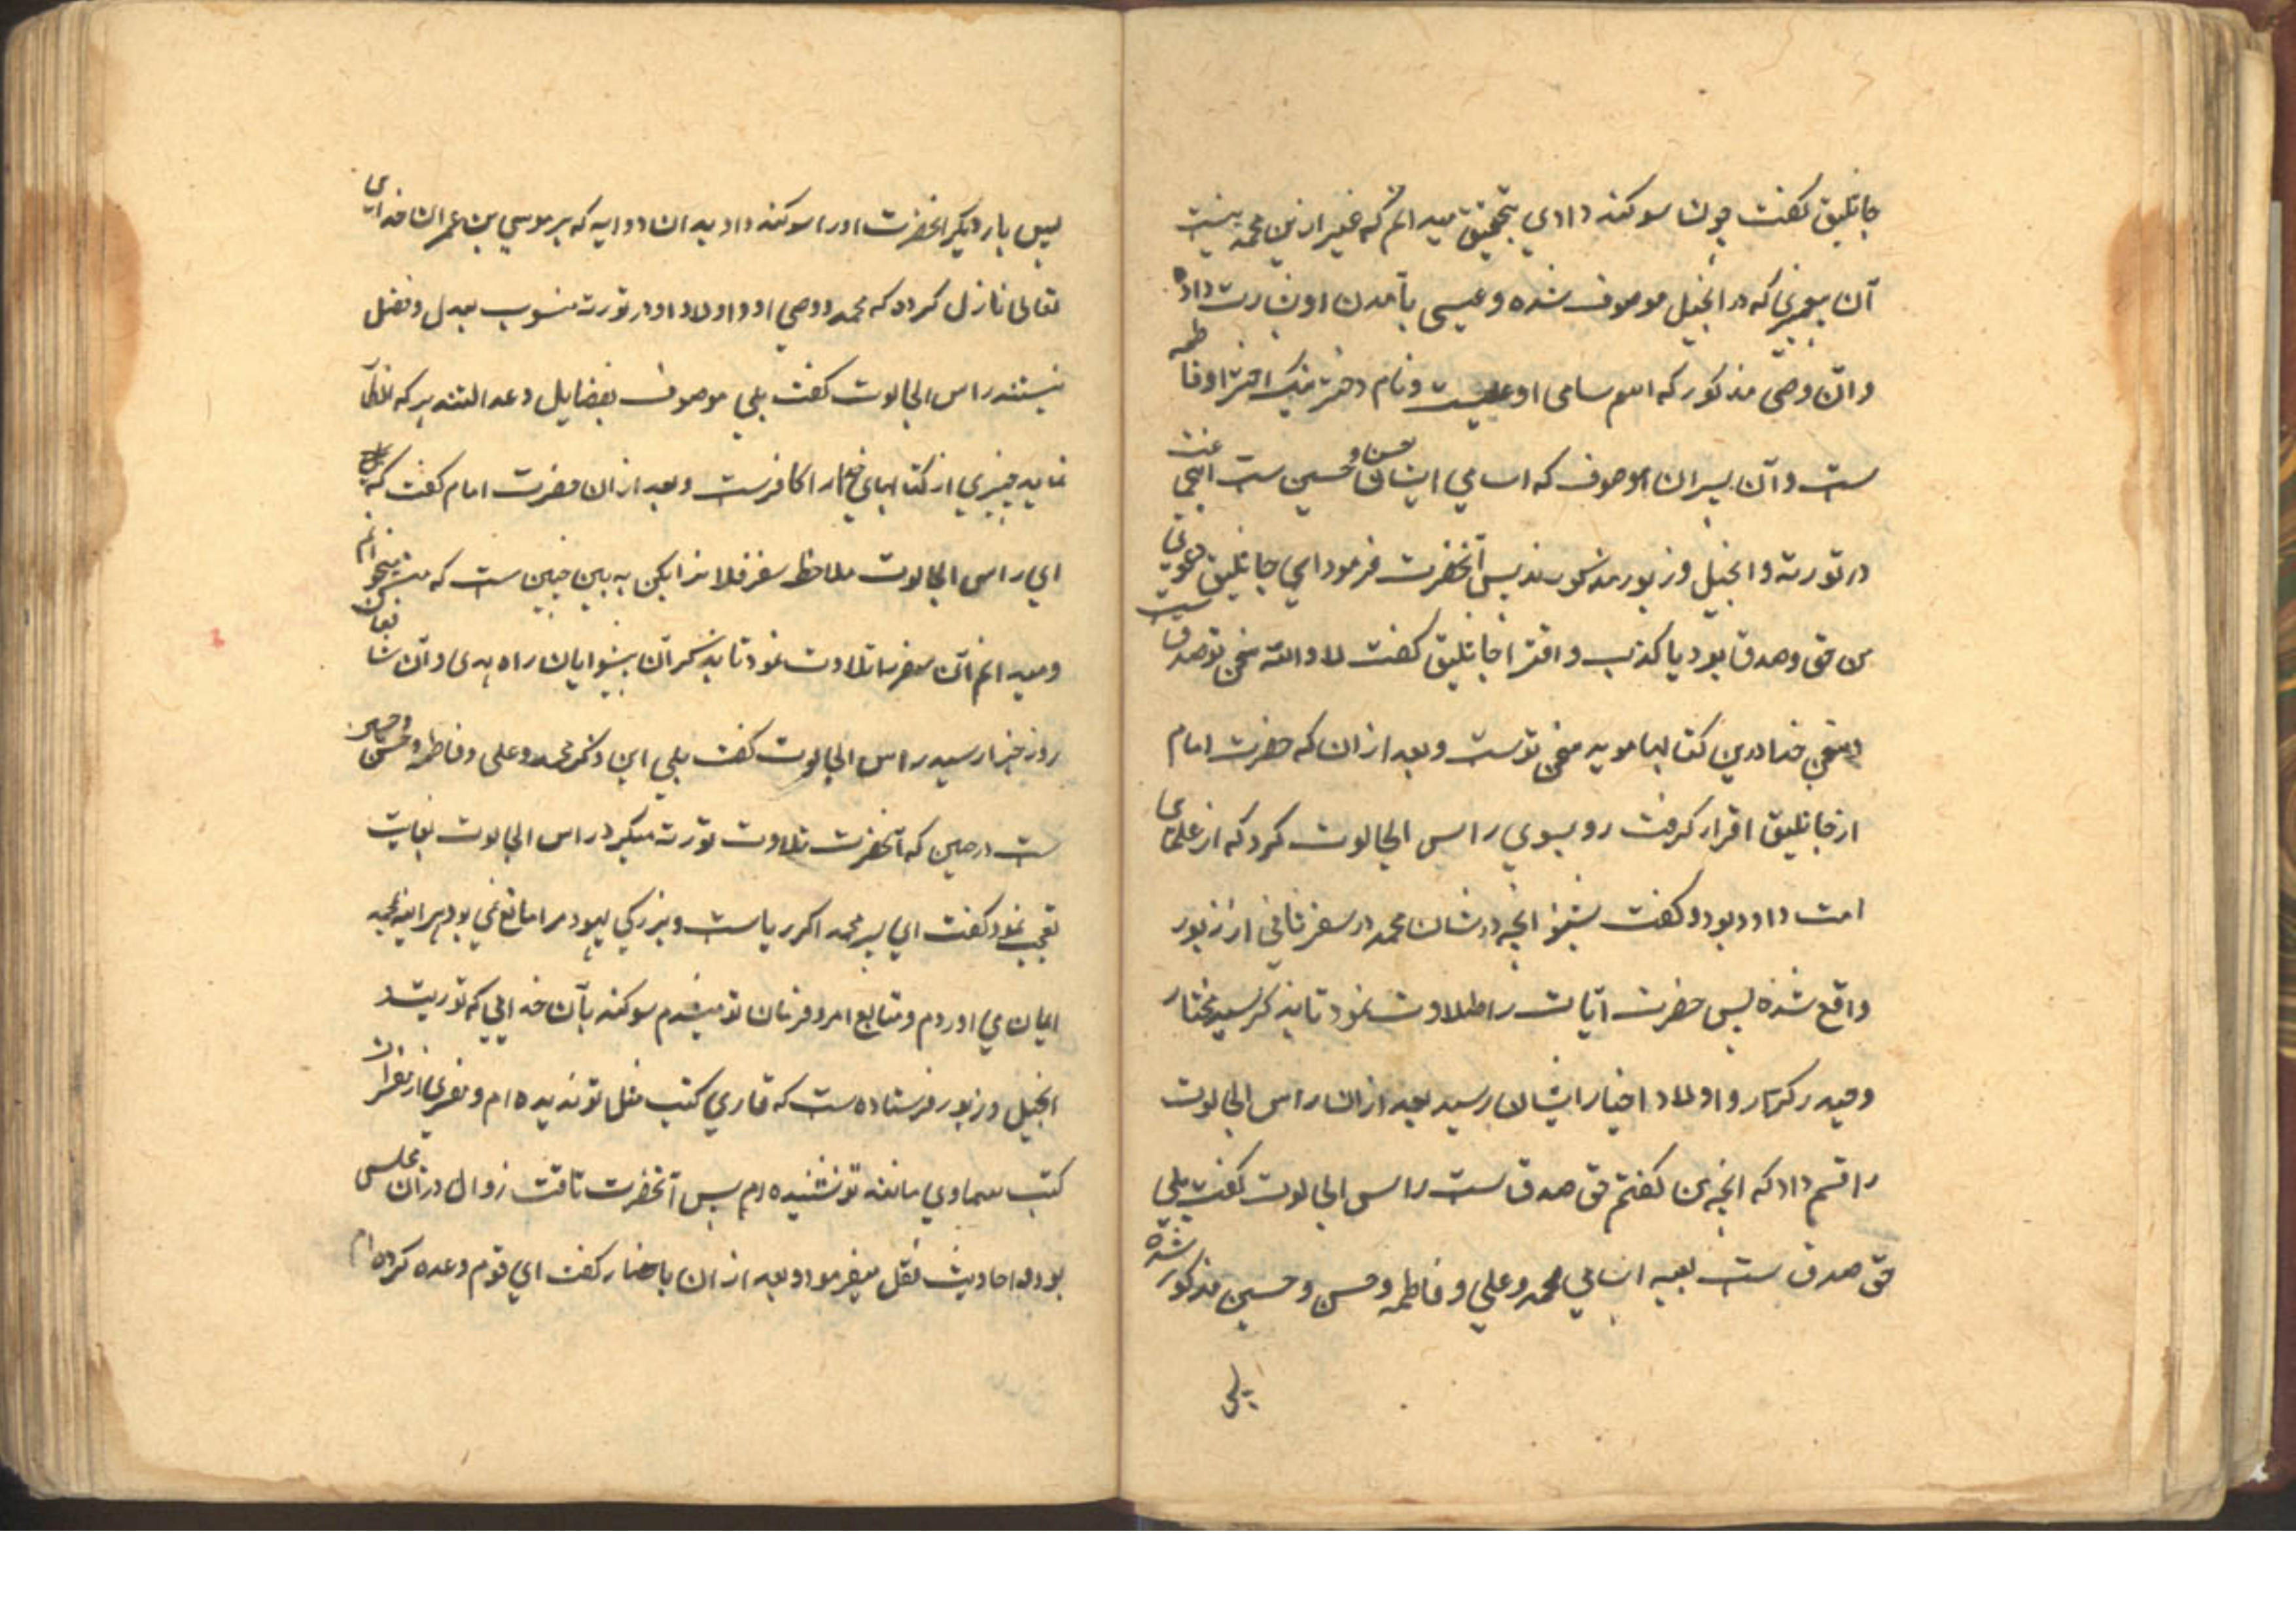 جاثلیق گفت چون سوکند دادي بتحقیق میدانم که غیر ازین محمد نیست
آن پیغمبری که در انجیل موصوف شده و عیسی بآمدن او بشارت داد
و آن وصی مذکور که اسم سامی او علیست و نام دختر نیک اختر او فاطمه
ست و آن پسران موصوف که اسامي ایشان حسن و حسین ست
در توریة و انجیل و زبور مذکورند پس آنحضرت فرمود اي جاثلیق
من حق و صدق بود یا کذب و افترا جاثلیق گفت لا والله سخن تو صدق ست
و سخن خدا درین کتابها موید سخن توست و بعد از ان که حضرت امام
از جاثلیق اقرار گرفت رو بسوي راس الجالوت کرد که از علمای
امت داود بود و گفت بشنو انچه در شان محمد در سفر ثانی از زبور
واقع شده پس حضرت آیات را تلاوت نمود تا بذکر سید مختار
و حیدر کرار و اولاد اخیار ایشان رسید بعد از ان راس الجالوت
را قسم داد که انچه من گفتم حق صدق ست راس الجالوت گفت بلي
حق صدق ست بعینه اسامي محمد و علي و فاطمه و حسن و حسین مذکور شده
پس بار دیگر انحضرت اورا سوکند داد بدان دو ایه که بر موسي بن عمران خدای
تعالی نازل کرده که محمد و وصي او و اولاد او در توریة منسوب بعدل و فضل
نیستند راس الجالوت گفت بلي موصوف بفضایل و عدالتند هر که انکار
نماید چیزي از کتابهاي خدا را کافرست و بعد از ان حضرت امام گفت که
اي راس الجالوت ملاحظه سفر فلان را بکن به بین چنین ست که میخوانم
و میدانم آن سفر را تلاوت نمود تا بذکر آن پیشوایان راه هدی و آن شافعان
روز جزا رسید راس الجالوت گفت بلي این ذکر محمد و علی و فاطمه و حسن و حسین
ست در حین که آنحضرت تلاوت توریة میکرد راس الجالوت بغایت
تعجب نمود و گفت اي پسر محمد اکر ریاست و بزرکي یهود مرا مانع نمي بود هر اینه بمحمد
ایمان مي اوردم و متابع امر و فرمان تو میشدم سوکند بآن خدایي که توریت
انجیل و زبور فرستاده ست که قاري کتب مثل تو ندیده ام و
کتب سماوي مانند تو نشنیده ام پس آنحضرت تا وقت زوال در آن مجلس
بود و احادیث نقل میفرمود و بعد از ان باحضار گفت اي قوم وعده کرده ام